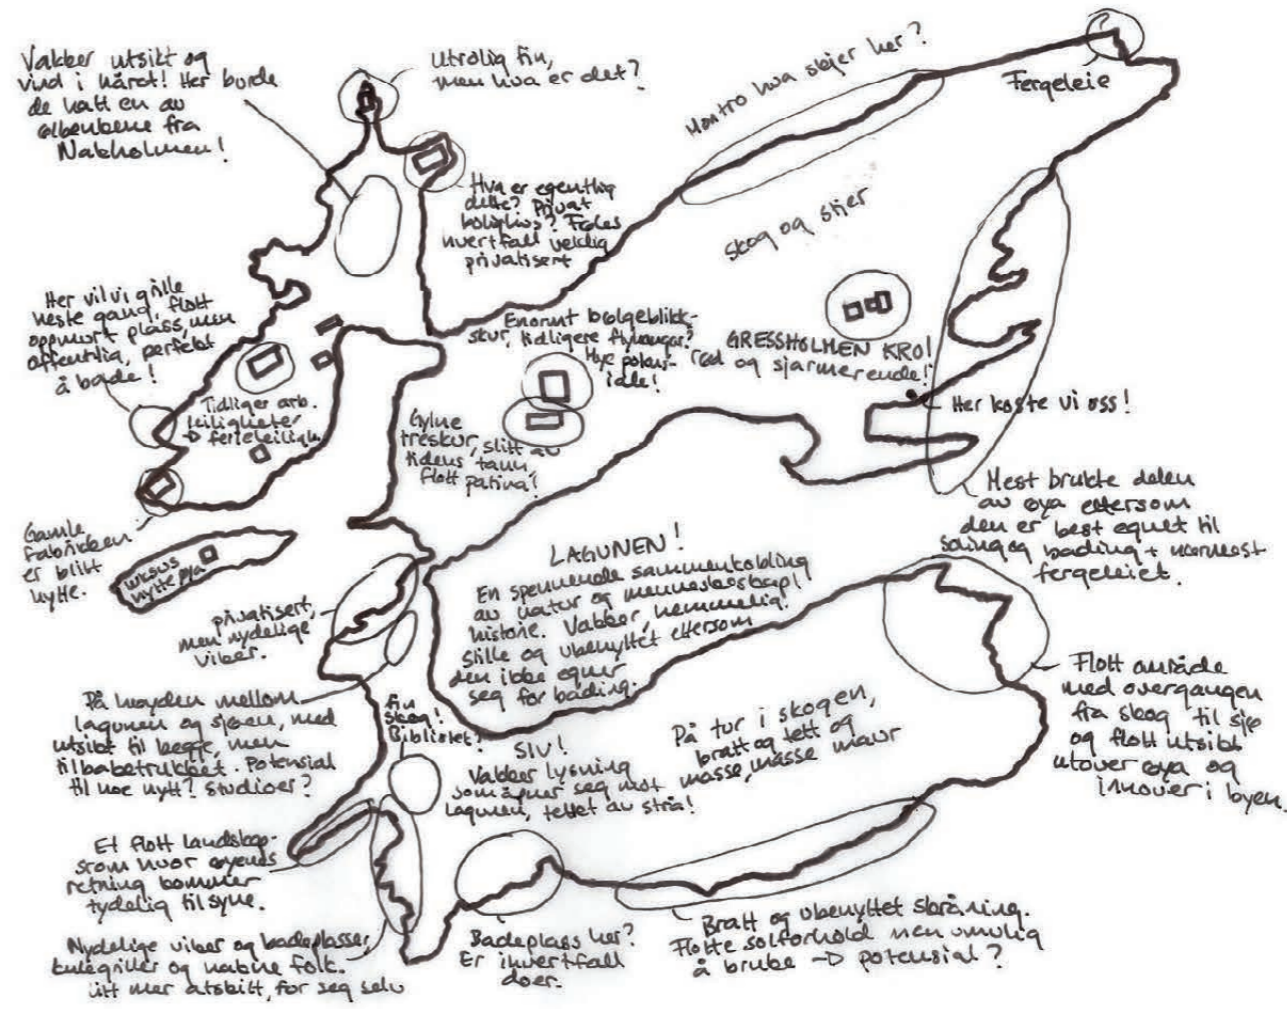 Vakker utsikt og
vind i håret! Her burde
de hatt en av
ølbenkene fra
Nakholmen!
Utrolig fin,
men hva er det?
Montro hva skjer her?
Fergeleie
Hva er egentlig
dette? Privat
bolighus? Føles
hvertfall veldig
privatisert
Skog og stier
Her vil vi grille
neste gang, flott
oppmurt plass, men
offentlig, perfekt
å bade!
Enormt bølgeblikk-
skur, tidligere flyhangar?
Mye potens-
iale!
GRESSHOLMEN KRO!
rød og sjarmerende!
Her koste vi oss!
Tidliger arb.
leiligheter
→ ferieleiligh.
Gylne
treskur, slitt av
tidens tann,
flott patina!
Gamle
fabrikken
er blitt
hytte.
luksus
hytte øya
Mest brukte delen
av øya ettersom
den er best egnet til
soling og bading + nærmest
fergeleiet.
LAGUNEN!
En spennende sammenkobling
av natur og menneskeskapt
historie. Vakker, hemmelig!
Stille og ubenyttet ettersom
den ikke egner
seg for bading.
privatisert,
men nydelige
viber.
På høyden mellom
lagunen og sjøen, med
utsikt til begge, men
tilbaketrukket. Potensial
til noe nytt? Studioer?
Fin
skog!
Bibliotek?
SIV!
Vakker lysning
som åpner seg mot
lagunen, tettet av strå!
På tur i skogen,
bratt og tett og
masse, masse maur
Flott område
med overgangen
fra skog til sjø
og flott utsikt
utover øya og
innover i byen.
Et flott landskap-
srom hvor øyenes
retning kommer
tydelig til syne.
Nydelige viber og badeplasser,
kulegriller og nakne folk.
litt mer atskilt, for seg selv
Badeplass her?
Er ihvertfall
doer.
Bratt og ubenyttet skråning.
Flotte solforhold men umulig
å bruke → potensial?